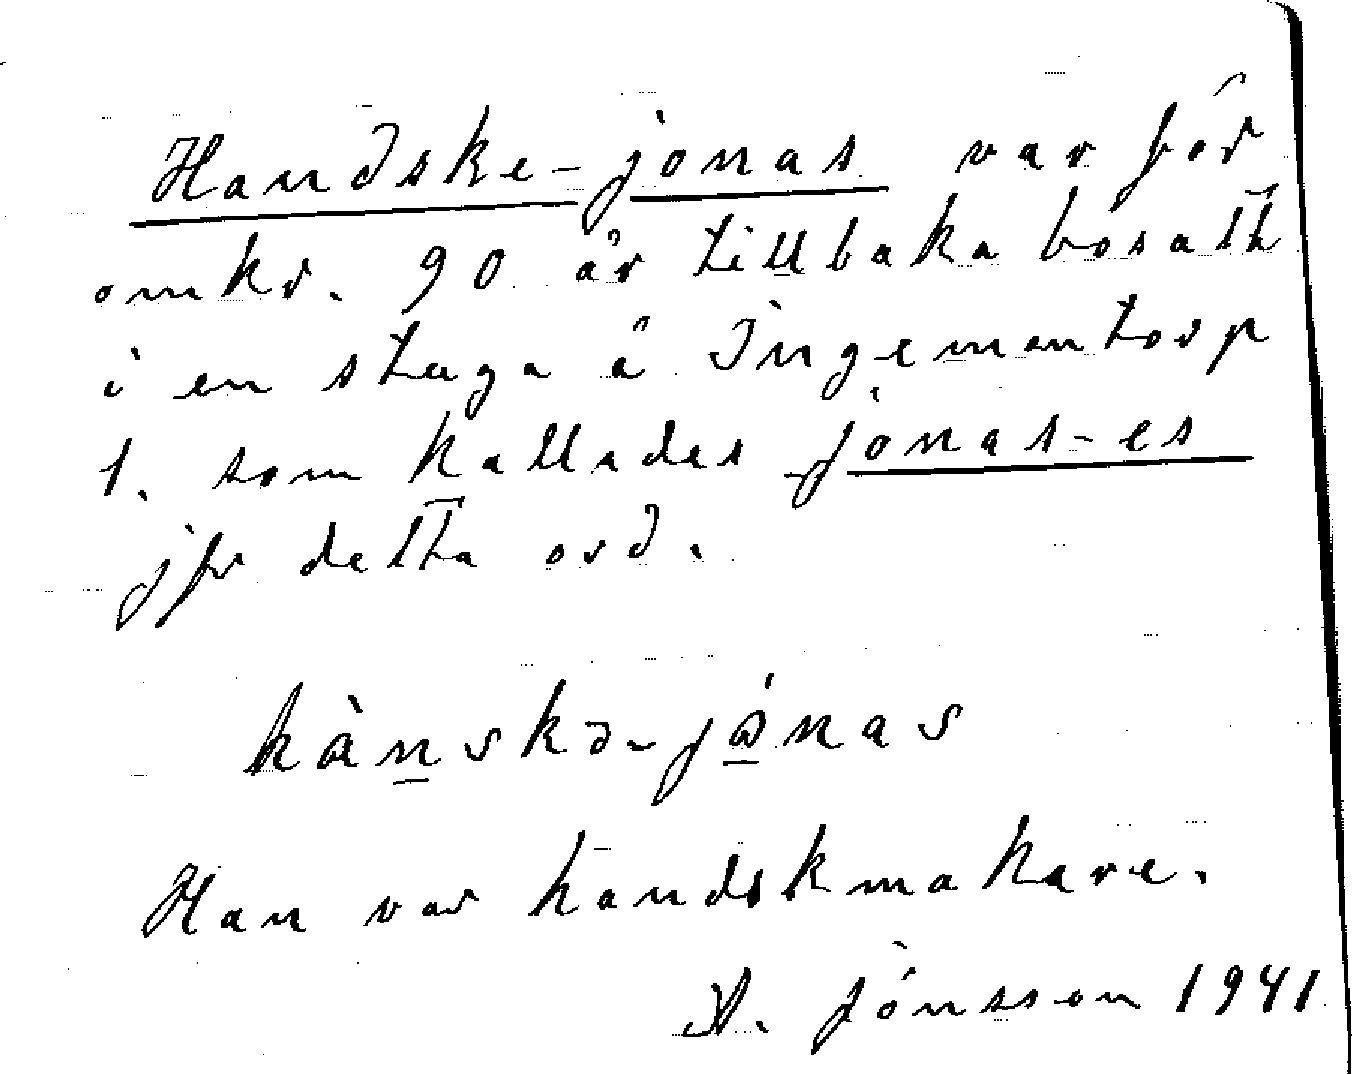 Handske-jonas var för
omkr. 90 år tillbaka bosatt
i en stuga å Ingemantorp
1. som kallades jonas-es
jfr detta ord.
hànskə-jónas
Han var handskmakare.
A. Jónsson 1941